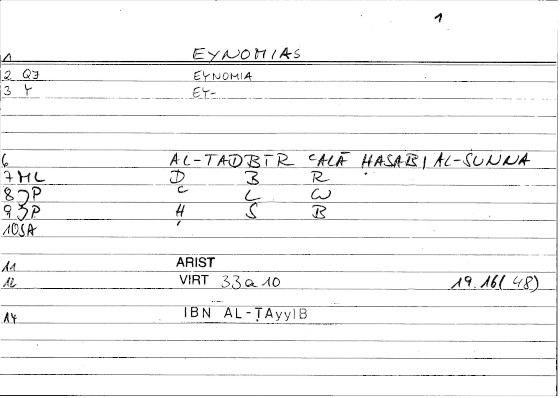 1
1 EYNOMIAS
2 QJ EYNOMIA
3 Y EY-
6 AL-TADBĪR ʿALĀ ḤASABI AL-SUNNA
7 ML D B R
8 JP ʿ L W
9 JP Ḥ S B
10 SA
11 ARIST
12 VIRT 33a10 19.16(48)
14 IBN AL-ṬAyyIB